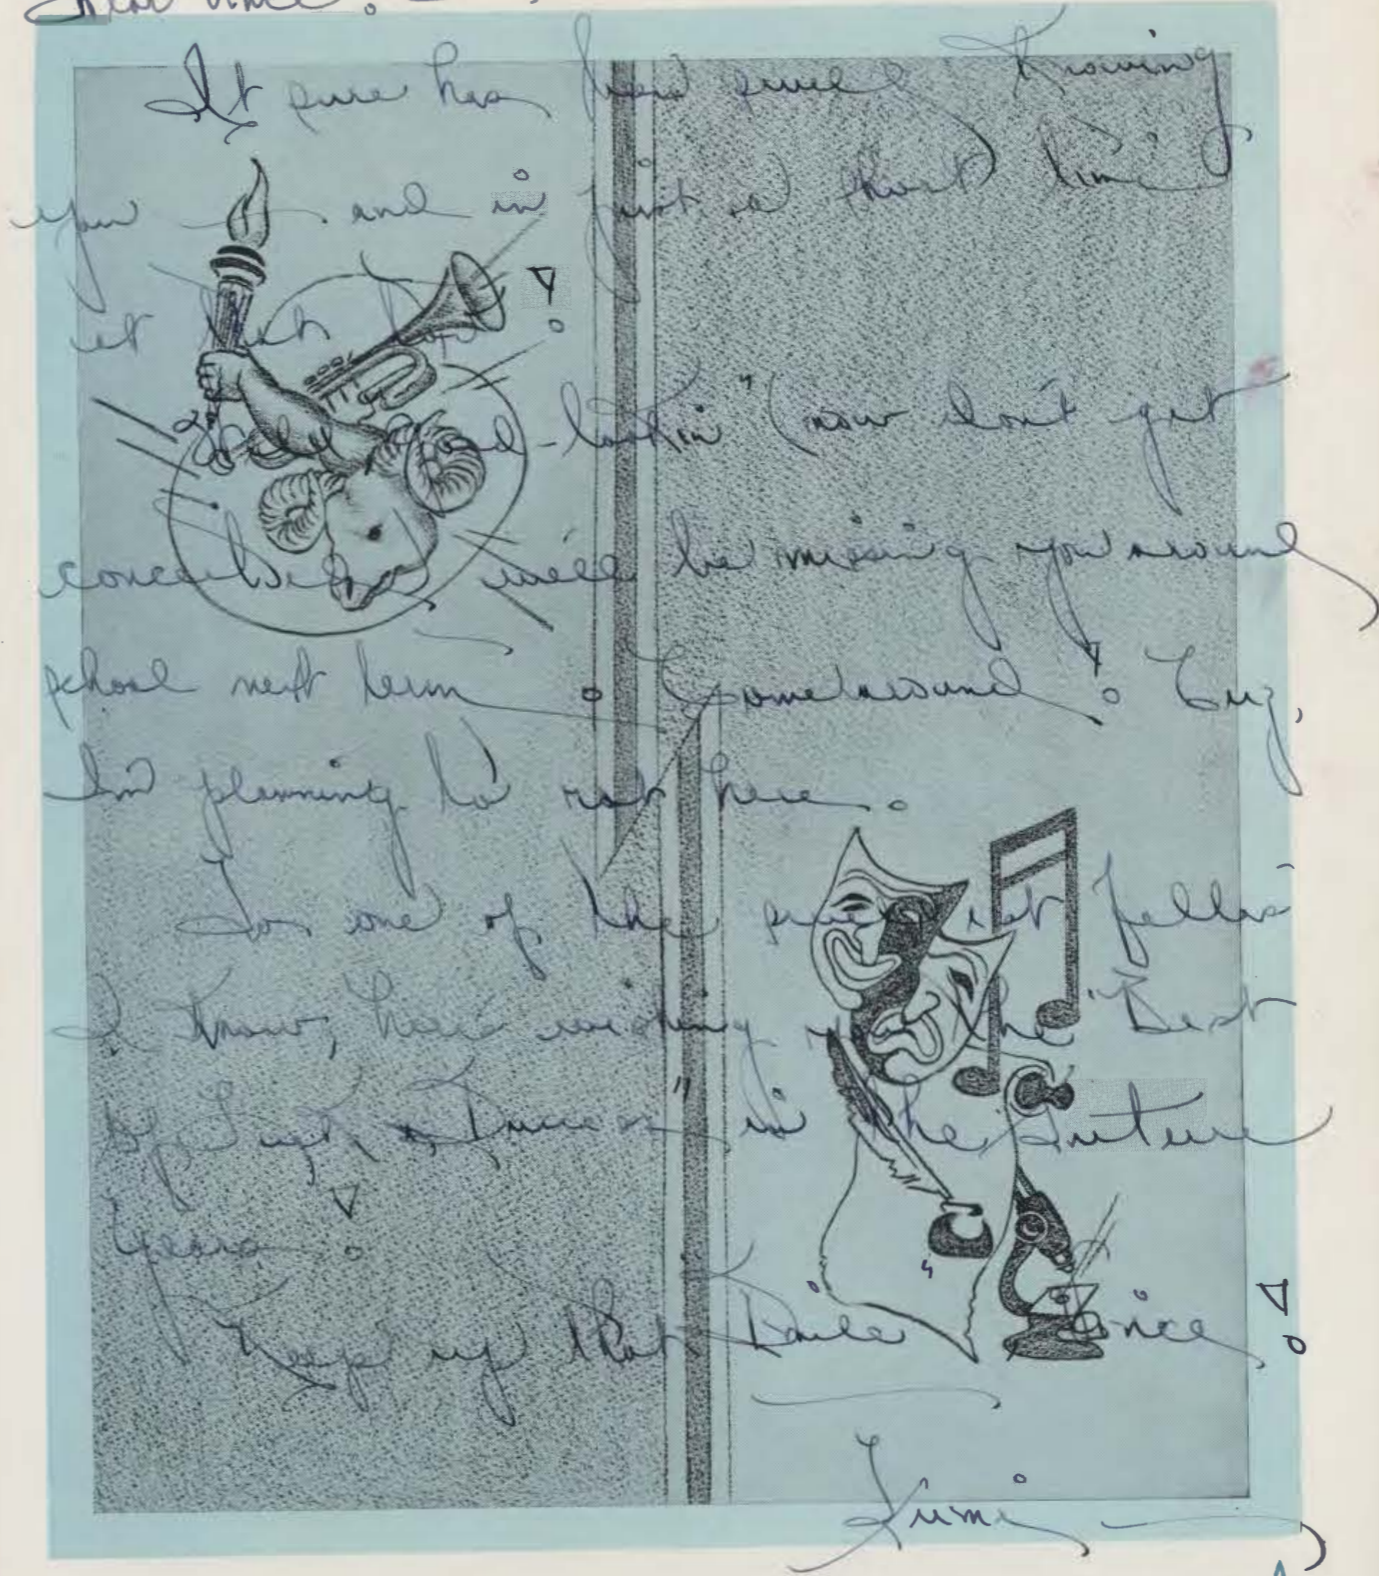 Dear Vince:
It sure has been swell Knowing
you and in just a short time
at that too!
-lookin" (now don't get
conceited) will be missing you around
school next term. Come around! Cuz,
I'm planning to rot here.
To one of the swellest fellas
I know, here's wishing you the "Best
of Luck & Success" in the future
Years!
Keep up that "Smile" Vince!
Kimi